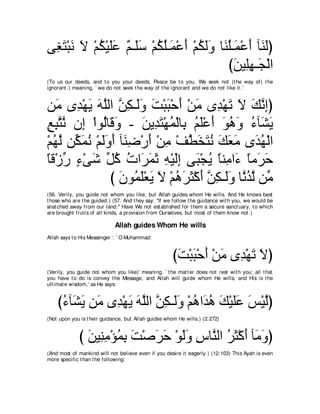 لَنَآ أَعْمَـلُنَا وَلَكُمْ أَعْمَـلُكُمْ سَلَـمٌ عَلَيْكُمْ لاَ نَبْتَغِى
الْجَـهِلِينَ)
(To us our deeds, and to you your deeds. Peace be to you. We seek not (the way of) the
ignorant.) meaning, `we do not seek the way of the ignorant and we do not like it.'
(إِنَّكَ لاَ تَهْدِى مَنْ أَحْبَبْتَ وَلَـكِنَّ اللَّهَ يَهْدِى مَن
يَشَآءُ وَهُوَ أَعْلَمُ بِالْمُهْتَدِينَ - وَقَالُوا إِن نَّتَّبِعِ
الْهُدَى مَعَكَ نُتَخَطَّفْ مِنْ أَرْضِنَآ أَوَلَمْ نُمَكِّن لَّهُمْ
حَرَماً ءَامِناً يُجْبَى إِلَيْهِ ثَمَرَاتُ كُلِّ شَىْءٍ رِّزْقاً
مِّن لَّدُنَّا وَلَـكِنَّ أَكْثَرَهُمْ لاَ يَعْلَمُونَ )
(56. Verily, you guide not whom you like, but Allah guides whom He wills. And He knows best
those who are the guided.) (57. And they say: "If we follow the guidance with you, we would be
snatched away from our land.'' Have We not established for them a secure sanctuary, to which
are brought fruits of all kinds, a provision from Ourselves, but most of them know not.)
Allah guides Whom He wills
Allah says to His Messenger : `O Muhammad:
(لاَ تَهْدِى مَنْ أَحْبَبْتَ)
(Verily, you guide not whom you like)' meaning, `the matter does not rest with you; all that
you have to do is convey the Message, and Allah will guide whom He wills, and His is the
ultimate wisdom,' as He says:
(لَّيْسَ عَلَيْكَ هُدَاهُمْ وَلَـكِنَّ اللَّهَ يَهْدِى مَن يَشَآءُ)
(Not upon you is their guidance, but Allah guides whom He wills.) (2:272)
(وَمَآ أَكْثَرُ النَّاسِ وَلَوْ حَرَصْتَ بِمُؤْمِنِينَ )
(And most of mankind will not believe even if you desire it eagerly.) (12:103) This Ayah is even
more specific than the following: